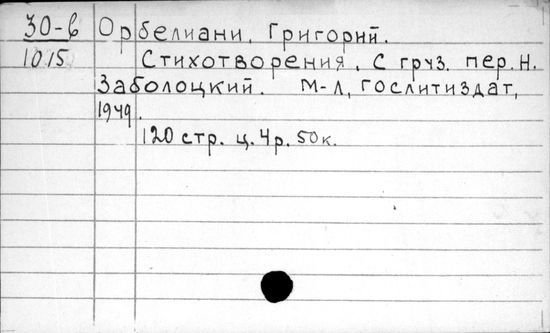 30-в Орбелиани, Григорий.
1015 Стихотворения. С груз. пер. Н.
Заболоцкий. М-Л, Гослитиздат,
1949.
120 стр. ц. 4р. 50к.